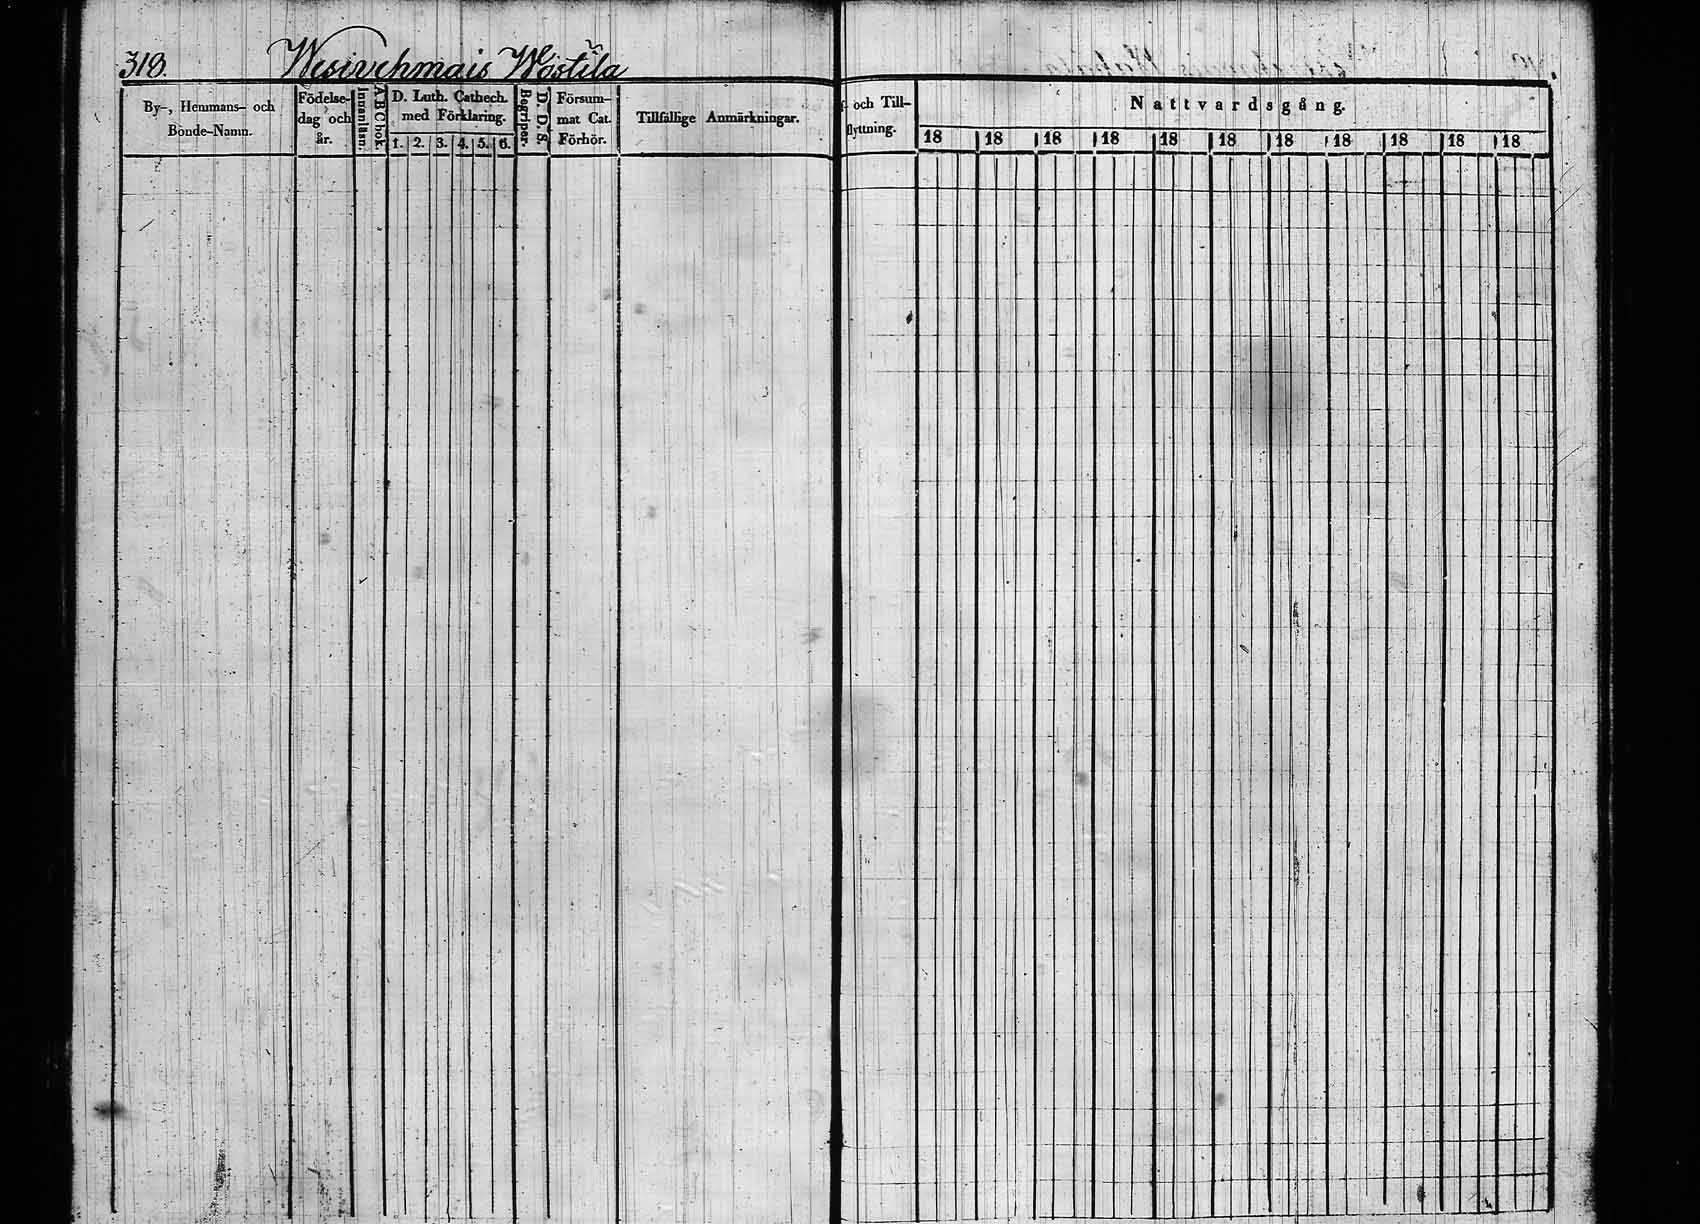 318. Wesivehmais Wästilä
By-, Hemmans- och Bonde-Namn.
Födelse-dag och år.
Innanläsn.
A B C bok.
D. Luth. Cathech. med Förklaring.
1. 2. 3. 4. 5. 6.
Begriper.
D. D. S.
Försum-mat Cat. Förhör.
Tillfällige Anmärkningar.
och Till-flyttning.
Nattvardsgång.
18 18 18 18 18 18 18 18 18 18 18